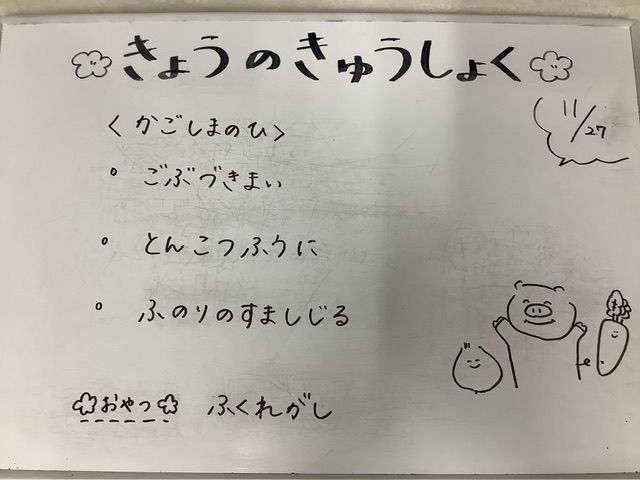 きょうのきゅうしょく
11/27
<かごしまのひ>
ごぶづきまい
とんこつふうに
ふのりのすましじる
おやつ ふくれがし